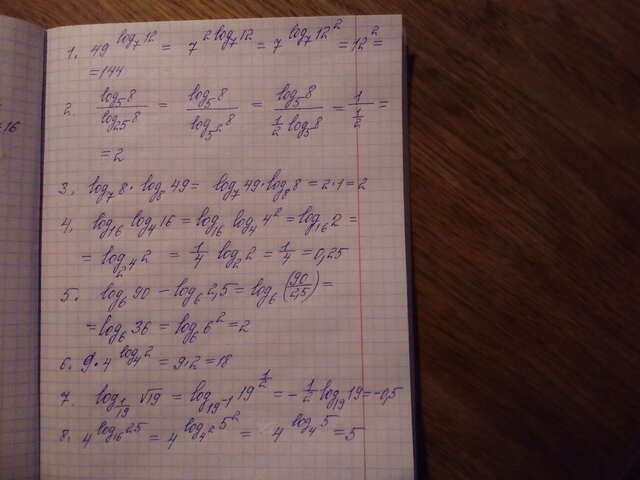 1. 49^{log_7 12} = 7^{2 log_7 12} = 7^{log_7 12^2} = 12^2 =
= 144
2. \frac{log_5 8}{log_{25} 8} = \frac{log_5 8}{log_{5^2} 8} = \frac{log_5 8}{\frac{1}{2} log_5 8} = \frac{1}{\frac{1}{2}} =
= 2
3. log_7 8 · log_8 49 = log_7 49 · log_8 8 = 2 · 1 = 2
16
4. log_{16} log_4 16 = log_{16} log_4 4^2 = log_{16} 2 =
= log_{2^4} 2 = \frac{1}{4} log_2 2 = \frac{1}{4} = 0,25
5. log_6 90 - log_6 2,5 = log_6 (\frac{90}{2,5}) =
= log_6 36 = log_6 6^2 = 2
6. 9 · 4^{log_4 2} = 9 · 2 = 18
7. log_{\frac{1}{19}} √19 = log_{19^{-1}} 19^{\frac{1}{2}} = -\frac{1}{2} log_{19} 19 = -0,5
8. 4^{log_{16} 25} = 4^{log_{4^2} 5^2} = 4^{log_4 5} = 5